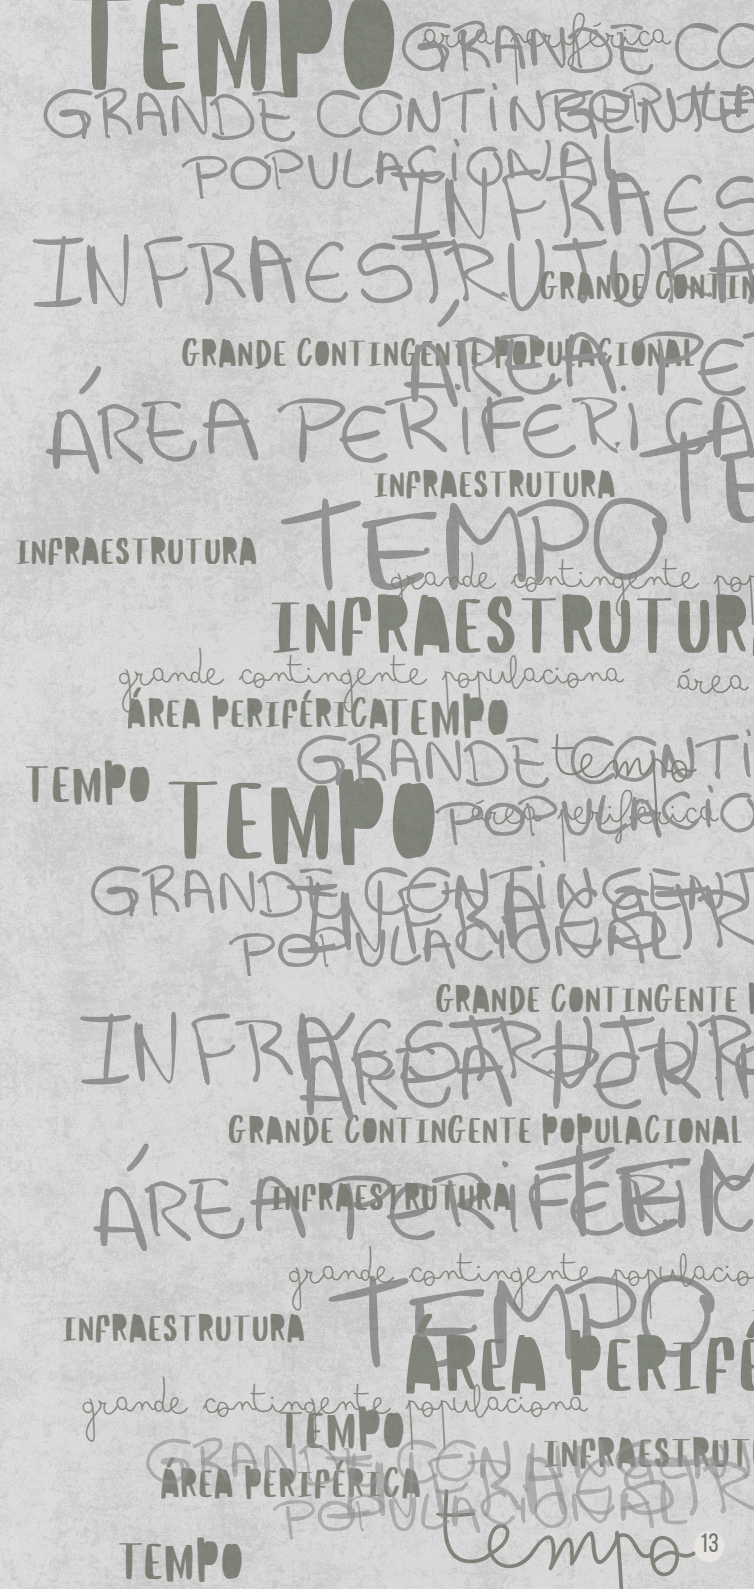 TEMPO
área periférica
GRANDE CO
GRANDE CONTINGENTE
POPULACIONAL
INFRAES
INFRAESTRUTURA
GRANDE CONTIN
GRANDE CONTINGENTE POPULACIONAL
ÁREA PE
ÁREA PERIFÉRICA
TE
INFRAESTRUTURA
TEMPO
INFRAESTRUTURA
grande contingente pop
INFRAESTRUTURA
grande contingente populaciona
área
ÁREA PERIFÉRICA TEMPO
GRANDE CONTI
tempo
TEMPO
TEMPO
POPULACIO
área periférica
GRANDE CONTINGENT
INFRAESTR
POPULACIONAL
GRANDE CONTINGENTE
INFRAESTRUTUR
ÁREA PERI
GRANDE CONTINGENTE POPULACIONAL
TEM
ÁREA PERIFÉRIC
INFRAESTRUTURA
grande contingente populacio
TEMPO
INFRAESTRUTURA
ÁREA PERIFÉ
grande contingente populaciona
TEMPO
GRANDE CONTINGEN
INFRAESTRUT
INFRAESTR
ÁREA PERIFÉRICA
POPULACIONAL
tempo
13
TEMPO